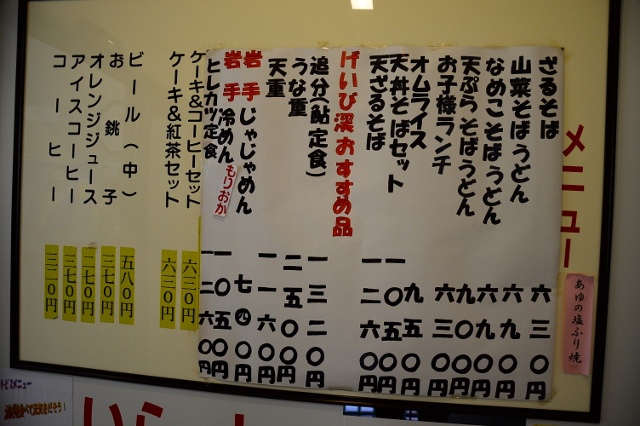 メニュー
あゆの塩ふり焼
ざるそば 六三〇円
山菜そばうどん 六九〇円
なめこそばうどん 六九〇円
天ぷらそばうどん 九〇〇円
お子様ランチ 六三〇円
オムライス 九五〇円
天丼そばセット 一〇五〇円
天ざるそば 一二六〇円
げいび渓おすすめ品
追分(鮎定食) 一三二〇円
うな重 二五〇〇円
天重 一一六〇円
岩手じゃじゃめん 七四〇円
岩手冷めん もりおか 一〇五〇円
ヒレカツ定食 一二六〇円
ケーキ&コーヒーセット 六三〇円
ケーキ&紅茶セット 六三〇円
ビール(中) 五八〇円
お銚子 三七〇円
オレンジジュース 二七〇円
アイスコーヒー 三七〇円
コーヒー 三二〇円